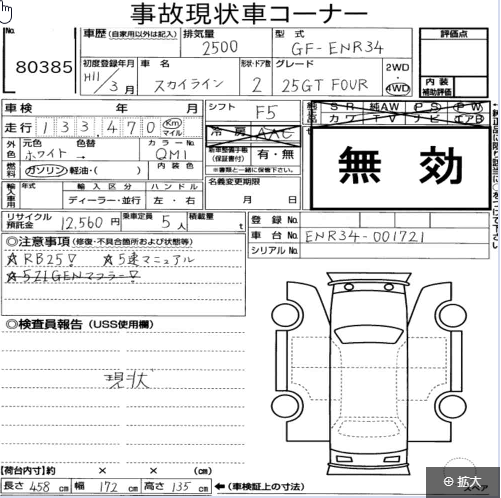 事故現状車コーナー
No.
80385
車歴 (自家用以外は記入)
排気量
2500
型式
GF-ENR34
評価点
初度登録年月
H11
3月
車名
スカイライン
形状・ドア数
2
グレード
25GT FOUR
2WD
・
4WD
内装
補助評価
車検 年 月
シフト
F5
走行 133,470 Km マイル
冷房 AAC
SR 純AW PS PW
カワ TV ナビ エアB
無効
外色
元色
ホワイト
色替
→
カラーNo.
QM1
新車整備手帳
(保証書付)
有・無
※車検証と一緒に保管して下さい。
燃料
ガソリン・軽油・( )
内装色
名義変更期限
月 日
輸入車用
年式
輸入区分
ディーラー・並行
ハンドル
左・右
リサイクル
預託金
12,560円
乗車定員
5人
積載量
t
登録No.
車台No.
ENR34-001721
シリアルNo.
◎注意事項 (修復・不具合箇所および状態等)
☆RB25▽ ☆5速マニュアル
☆521GENマフラー▽
◎検査員報告 (USS使用欄)
現状
【荷台内寸】約 × × (cm)
長さ 458 cm 幅 172 cm 高さ 135 cm
←(車検証上の寸法)
スペア
拡大